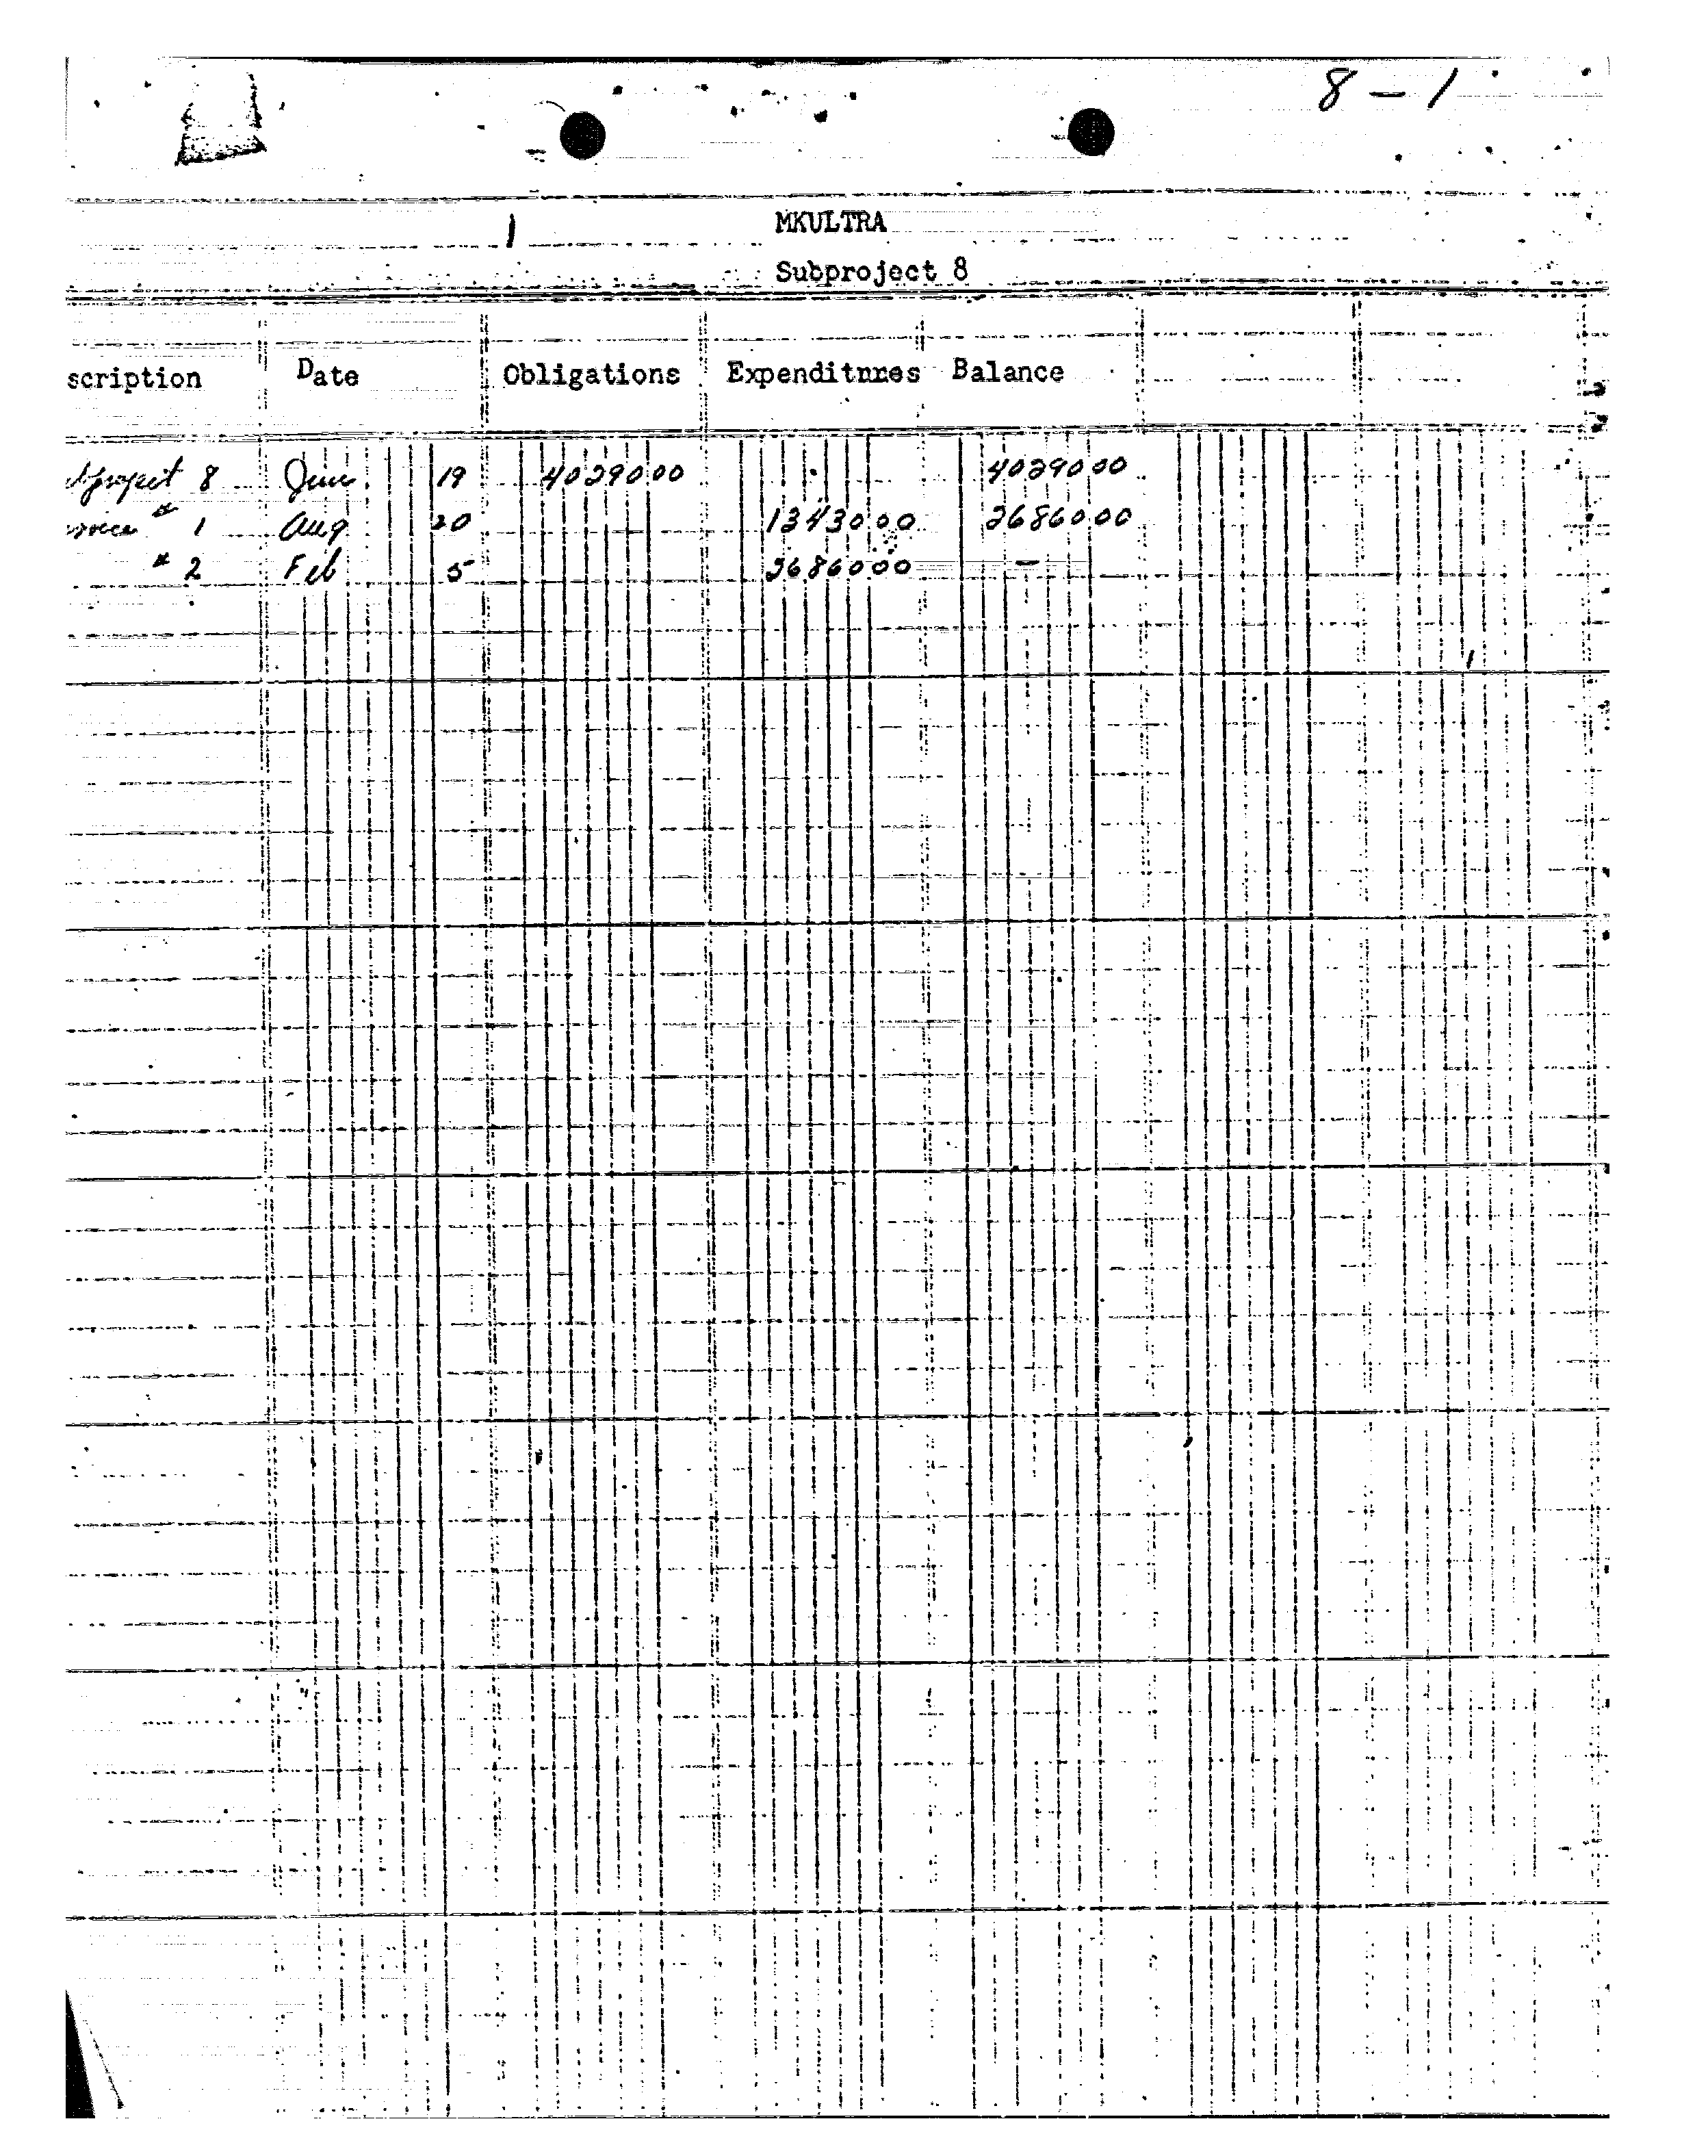 8 - 1
1
MKULTRA
Subproject 8
scription Date Obligations Expenditures Balance
8 June 19 40290 00 40290 00
# 1 Aug 20 13430 00 26860 00
# 2 Feb 5 26860 00 —